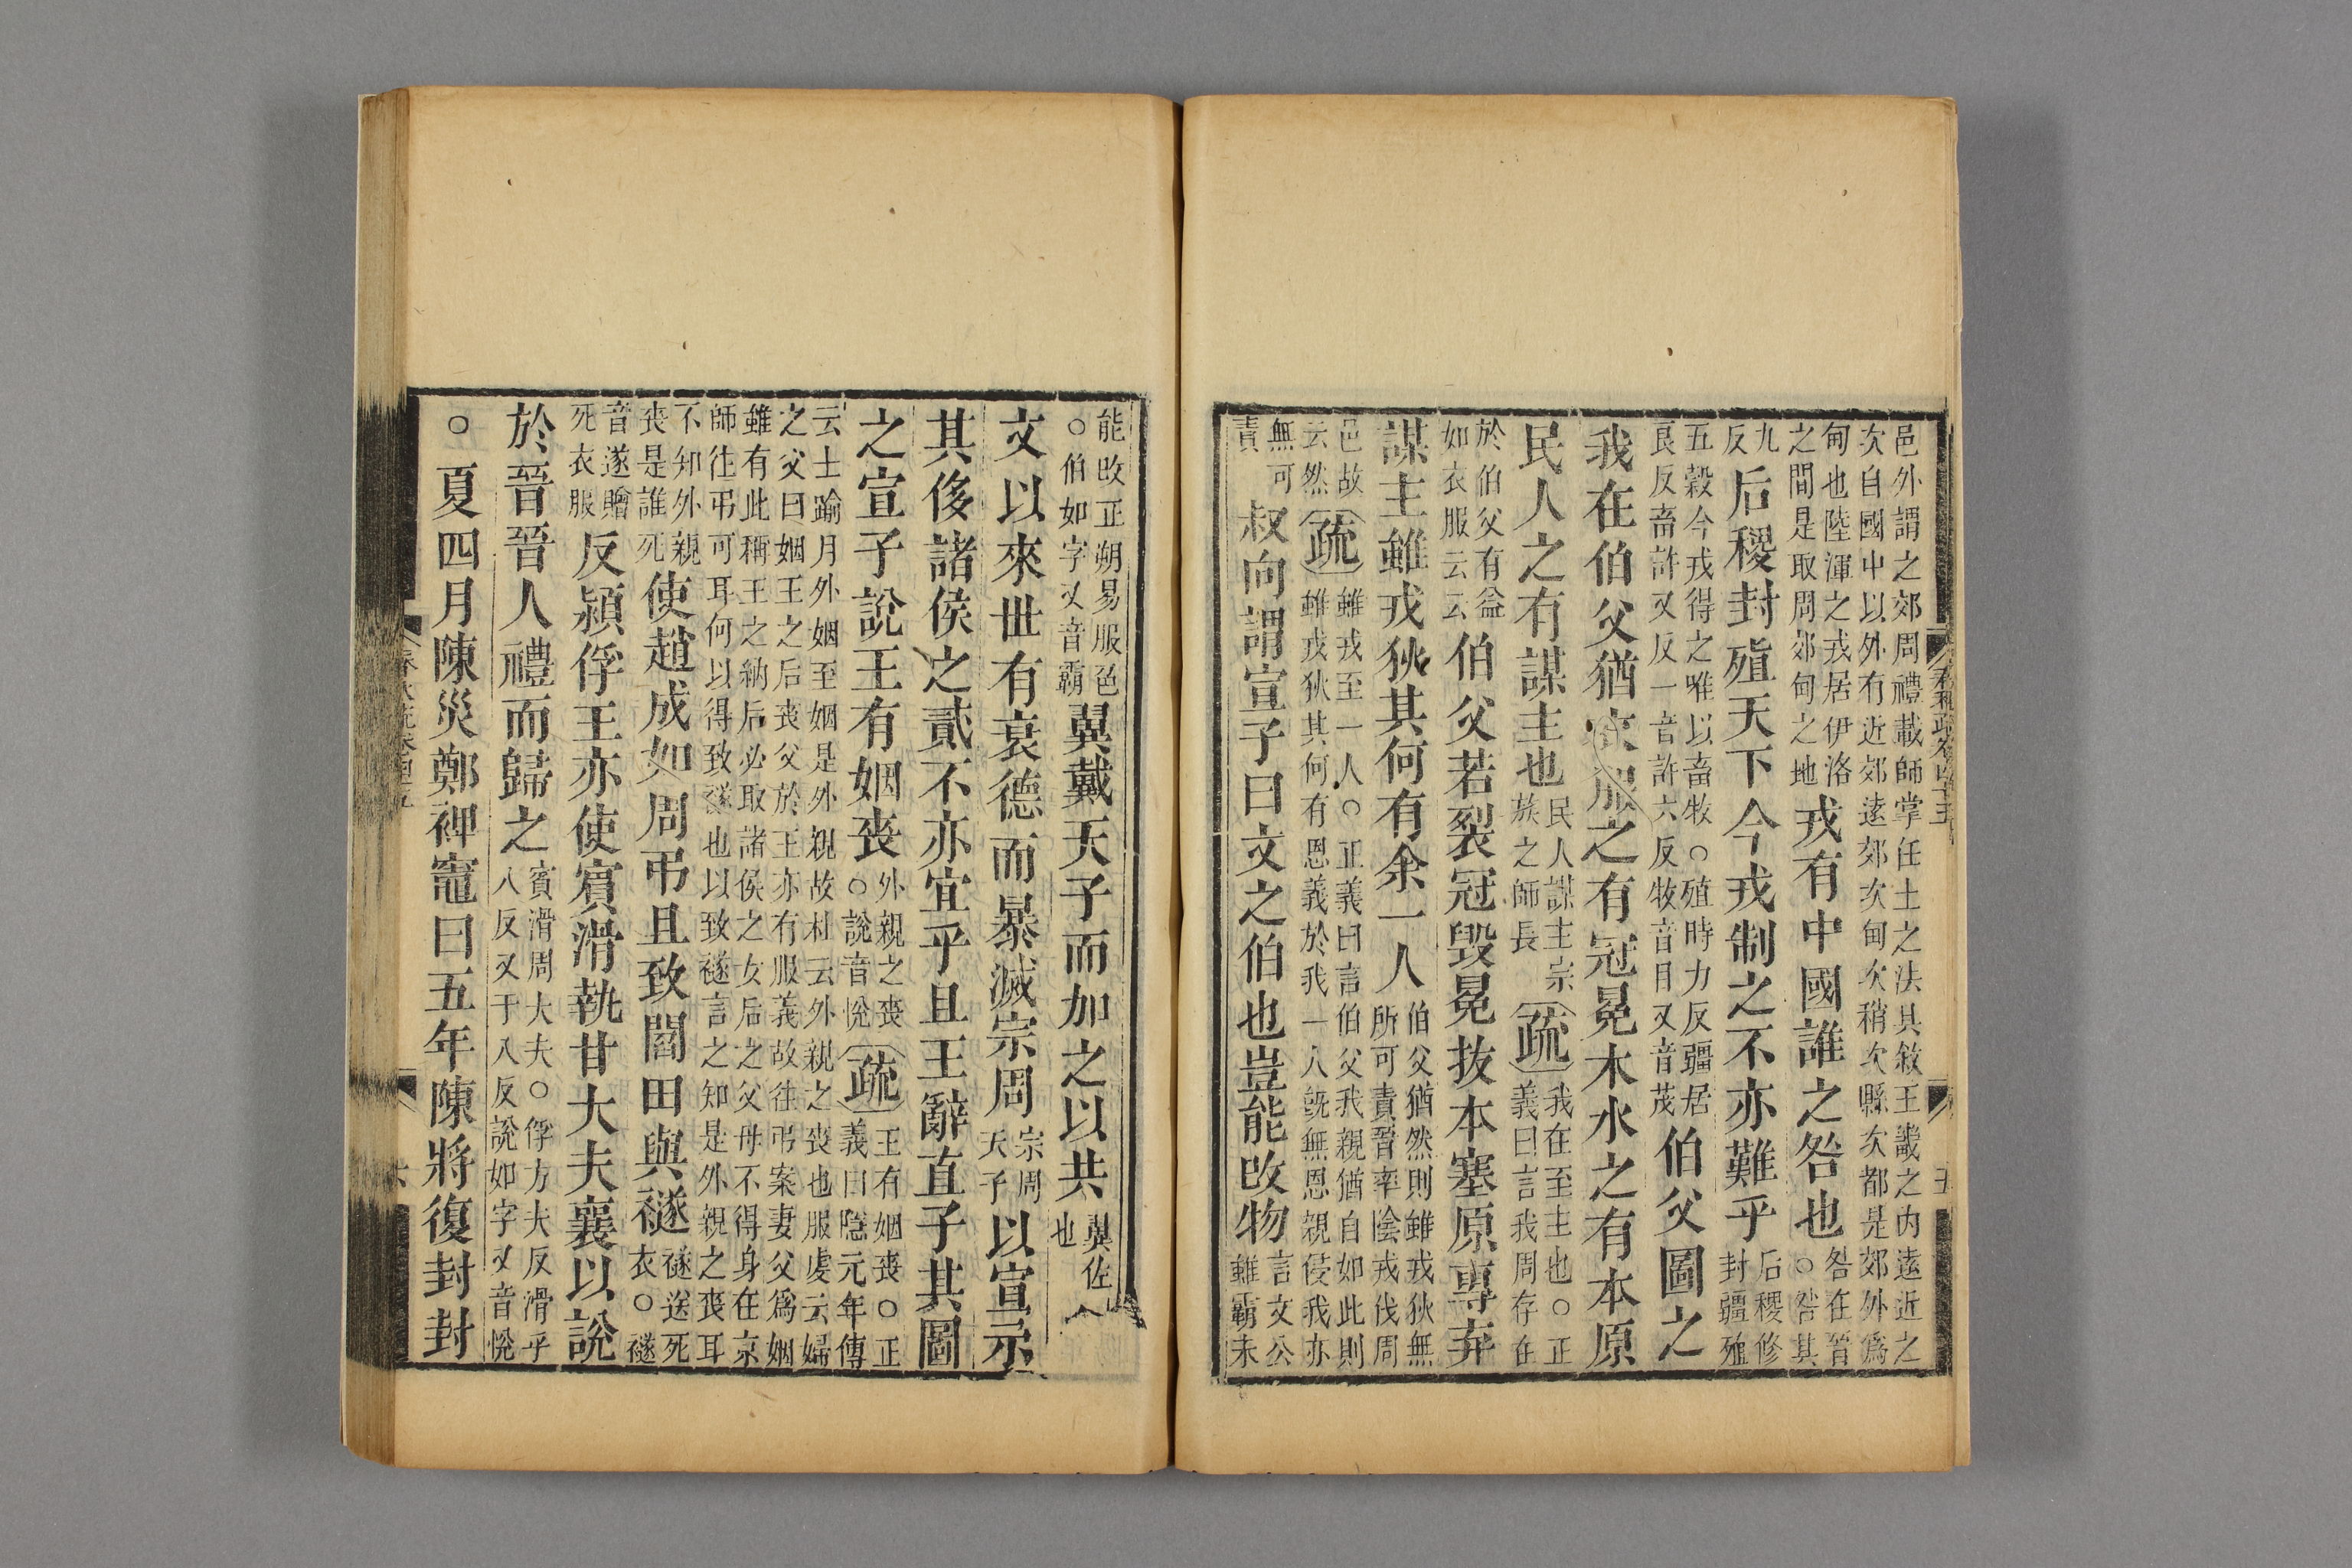 邑外謂之郊周禮載師掌任土之法具敘王畿之内遠近之
次自國中以外有近郊遠郊次甸次稍次縣次都是郊外爲
甸也陸渾之戎居伊洛
之間是取周郊甸之地
戎有中國誰之咎也
咎在晉
○咎其
九
反
后稷封殖天下今戎制之不亦難乎
后稷修
封疆殖
五穀今戎得之唯以畜牧○殖時力反疆居
良反畜許又反一音許六反牧音目又音茂
伯父圖之
我在伯父猶衣服之有冠冕木水之有本原
民人之有謀主也
民人謀主宗
族之師長
疏
我在至主也○正
義曰言我周存在
於伯父有益
如衣服云云
伯父若裂冠毀冕拔本塞原專弃
謀主雖戎狄其何有余一人
伯父猶然則雖戎狄無
所可責晉率陰戎伐周
邑故
云然
疏
雖戎至一人○正義曰言伯父我親猶自如此則
雖戎狄其何有恩義於我一人旣無恩親侵我亦
無可
責
叔向謂宣子曰文之伯也豈能改物
言文公
雖霸未
能改正朔易服色
○伯如字又音霸
翼戴天子而加之以共
翼佐
也
文以來世有衰德而暴滅宗周
宗周
天子
以宣示
其侈諸侯之貳不亦宜乎且王辭直子其圖
之宣子說王有姻喪
外親之喪
○說音悅
疏
王有姻喪○正
義曰隱元年傳
云士踰月外姻至姻是外親故杜云外親之喪也服虔云婦
之父曰姻王之后喪父於王亦有服義故往弔案妻父爲姻
雖有此稱王之納后必取諸侯之女后之父母不得身在京
師往弔可耳何以得致襚也以致襚言之知是外親之喪耳
不知外親
喪是誰死
使趙成如周弔且致閻田與襚
襚送死
衣○襚
音遂贈
死衣服
反潁俘王亦使賓滑執甘大夫襄以說
於晉晉人禮而歸之
賓滑周大夫○俘方夫反滑乎
八反又于八反說如字又音悅
○夏四月陳災鄭裨竈曰五年陳將復封封